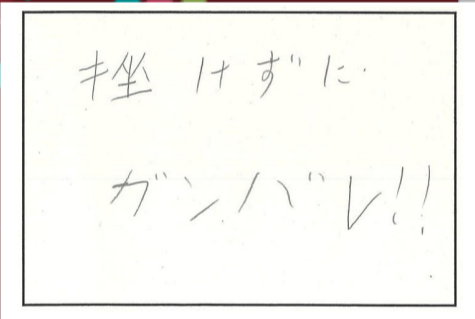 挫けずに
ガンバレ!!